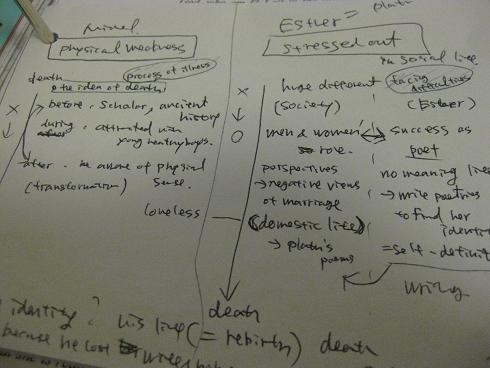 physical weakness
death
process of illness
the idea of death
before. Scholar, ancient
history
during. attracted
young healthy boys.
after. be aware of physical
(transformation) sense.
loneless
Esther = plath
stressed out
in social live
huge different
facing
difficulties
(society)
(Esther)
men & women
role.
success as
poet
perspectives
→ negative views
of marriage
(domestic life)
→ plath's
poems
no meaning lives
→ write poetries
to find her
identity
= self-definit
writing
death
identity? his life (= rebirth) death
because he lost